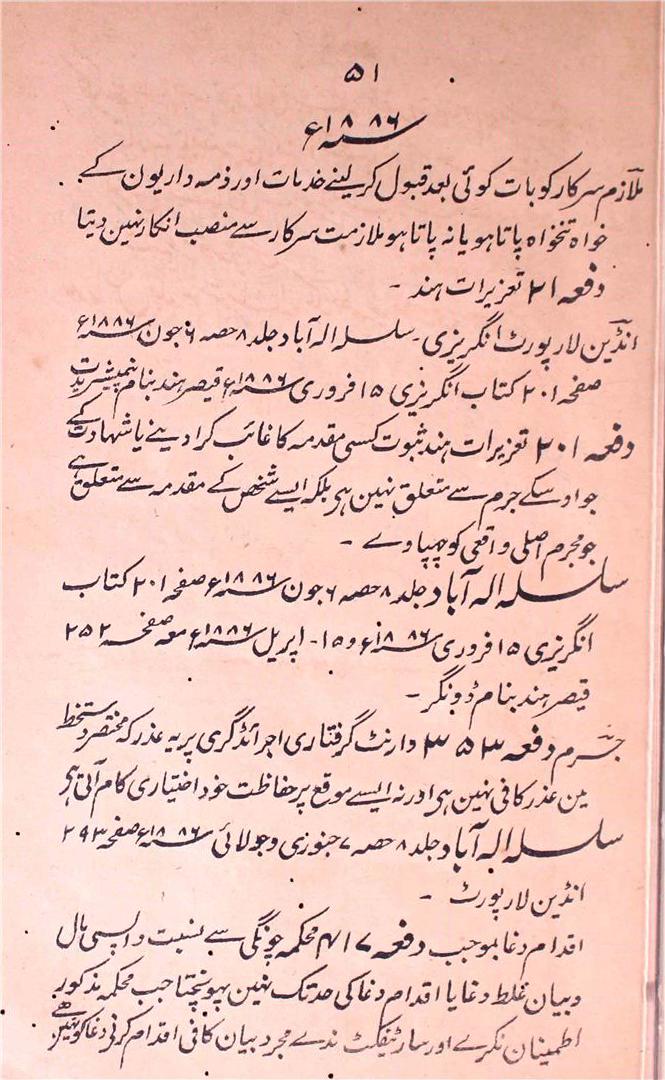 ۵۱
سنہ ۱۸۸۶ء
ملازم سرکار کو بات کوئی بعد قبول کر لینے خدمات اور ذمہ داریون کے
خواہ تنخواہ پاتا ہو یا نہ پاتا ہو ملازمت سرکار سے منصب انکار نہین دیتا
دفعہ ۲۱ تعزیرات ہند -
انڈین لا رپورٹ انگریزی - سلسلہ الہ آباد جلد ۸ حصہ ۶ جون سنہ ۱۸۸۶ء
صفحہ ۲۰۱ کتاب انگریزی ۱۵ فروری سنہ ۱۸۸۶ء قیصر ہند بنام
دفعہ ۲۰۱ تعزیرات ہند ثبوت کسی مقدمہ کا غائب کرا دینے یا شہادت کے
جو اوسکے جرم سے متعلق نہین ہی بلکہ ایسے شخص کے مقدمہ سے متعلق ہے
جو مجرم اصلی واقعی کو چھپاوے -
سلسلہ الہ آباد جلد ۸ حصہ ۶ جون سنہ ۱۸۸۶ء صفحہ ۲۰۱ کتاب
انگریزی ۱۵ فروری سنہ ۱۸۸۶ء و ۱۵ - اپریل سنہ ۱۸۸۶ء معہ صفحہ ۲۵۲
قیصر ہند بنام ڈونگر -
جرم دفعہ ۳۵۳ وارنٹ گرفتاری اجرائ ڈگری پر یہ عذر کہ مختصر دستخط
مین عذر کافی نہین ہی اور نہ ایسے موقع پر حفاظت خود اختیاری کام آتی ہی
سلسلہ الہ آباد جلد ۸ حصہ ۷ جنوری و جولائی سنہ ۱۸۸۶ء صفحہ ۲۹۳
انڈین لا رپورٹ -
اقدام دغا بموجب دفعہ ۴۱۷ محکمہ چونگی سے بہ نسبت واپسی مال
و بیان غلط دغا یا اقدام دغا کی حد تک نہین پہونچتا جب محکمہ مذکور
اطمینان نکرے اور سارٹیفکٹ ندے مجرد بیان کافی اقدام کرنی دغا کو نہین ہے